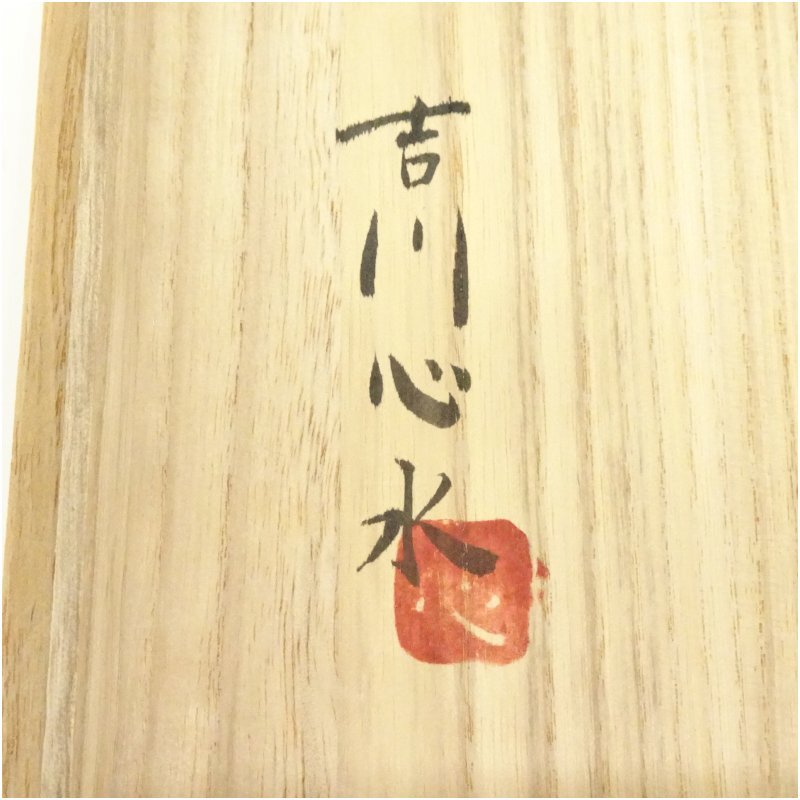 吉川心水
心